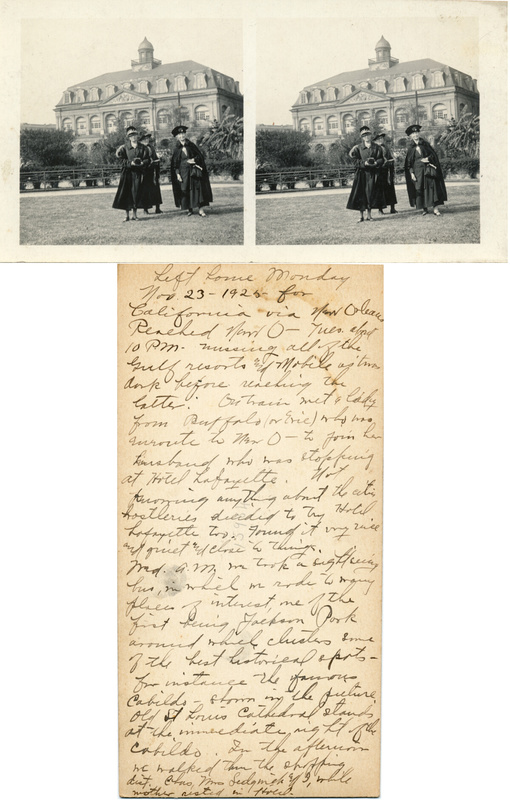 Left home Monday
Nov. 23 - 1925 for
California via New Orleans
Reached New O - Tues. abt
10 P.M. missing all of the
Gulf resorts and Mobile as it was
dark before reaching the
latter. On train met a lady
from Buffalo (or Erie) who was
enroute to New O - to join her
husband who was stopping
at Hotel Lafayette. Not
knowing anything about the city
hostleries decided to try Hotel
Lafayette too. Found it very nice
and quiet and close to things.
Wed. a.m. we took a sight seeing
bus, in which we rode to many
places of interest, one of the
first being Jackson Park
around which clusters some
of the best historical spots -
for instance the famous
Cabildo - shown in the picture
Old St Louis Cathedral stands
at the immediate right of the
Cabildo. In the afternoon
we walked thru the shopping
dist. Chas, Mrs Sedgwick & I, while
mother rested in Hotel.